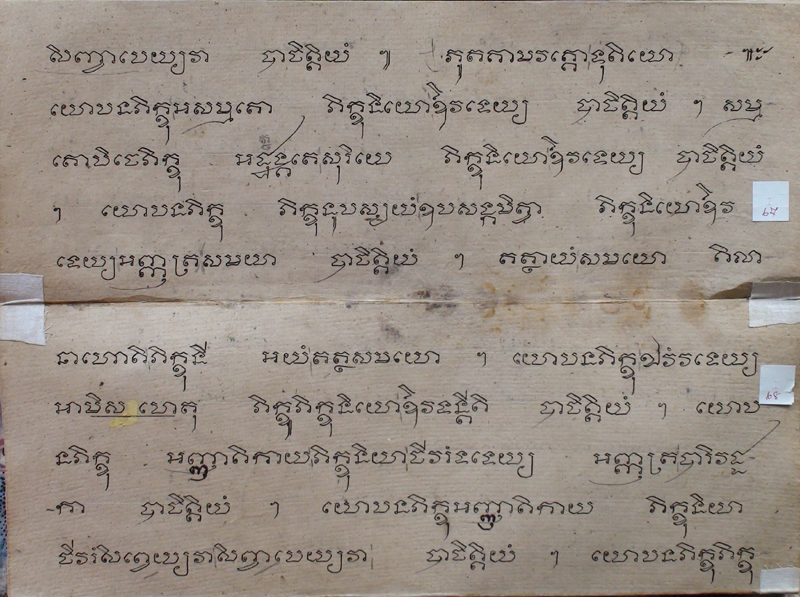 សិញ្ចាបេយ្យវា បាចិត្តិយំ ៕ ភូតគាមវគ្គោទុតិយោ ៕
យោបនភិក្ខុអសម្មតោ ភិក្ខុនិយោឱវទេយ្យ បាចិត្តិយំ ។ សម្ម
តោបិចេភិក្ខុ អត្ថង្គតេសុរិយេ ភិក្ខុនិយោឱវទេយ្យ បាចិត្តិយំ
។ យោបនភិក្ខុ ភិក្ខុនុបស្សយំឧបសង្កមិត្វា ភិក្ខុនិយោឱវ
ទេយ្យអញ្ញត្រសមយា បាចិត្តិយំ ។ តត្ថាយំសមយោ គិលា
នាហោតិភិក្ខុនី អយំតត្ថសមយោ ។ យោបនភិក្ខុឯវំវទេយ្យ
អាមិស ហេតុ ភិក្ខូភិក្ខុនិយោឱវទន្តីតិ បាចិត្តិយំ ។ យោប
នភិក្ខុ អញ្ញាតិកាយភិក្ខុនិយាចីវរំទទេយ្យ អញ្ញត្របារិវដ្ដ
កា បាចិត្តិយំ ។ យោបនភិក្ខុអញ្ញាតិកាយ ភិក្ខុនិយា
ចីវរំសិព្វេយ្យវាសិព្វាបេយ្យវា បាចិត្តិយំ ។ យោបនភិក្ខុភិក្ខុ